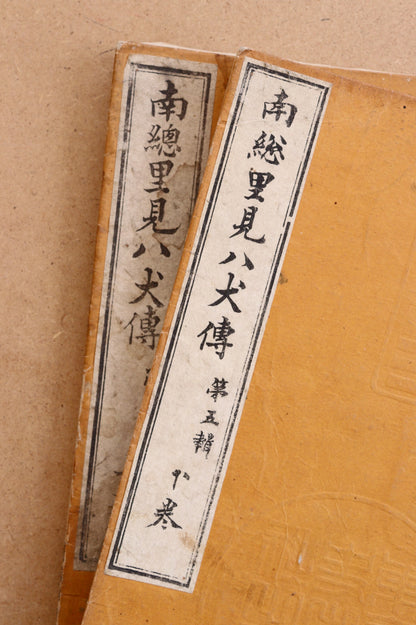 南總里見八犬傳
南総里見八犬傳 第五輯 巻